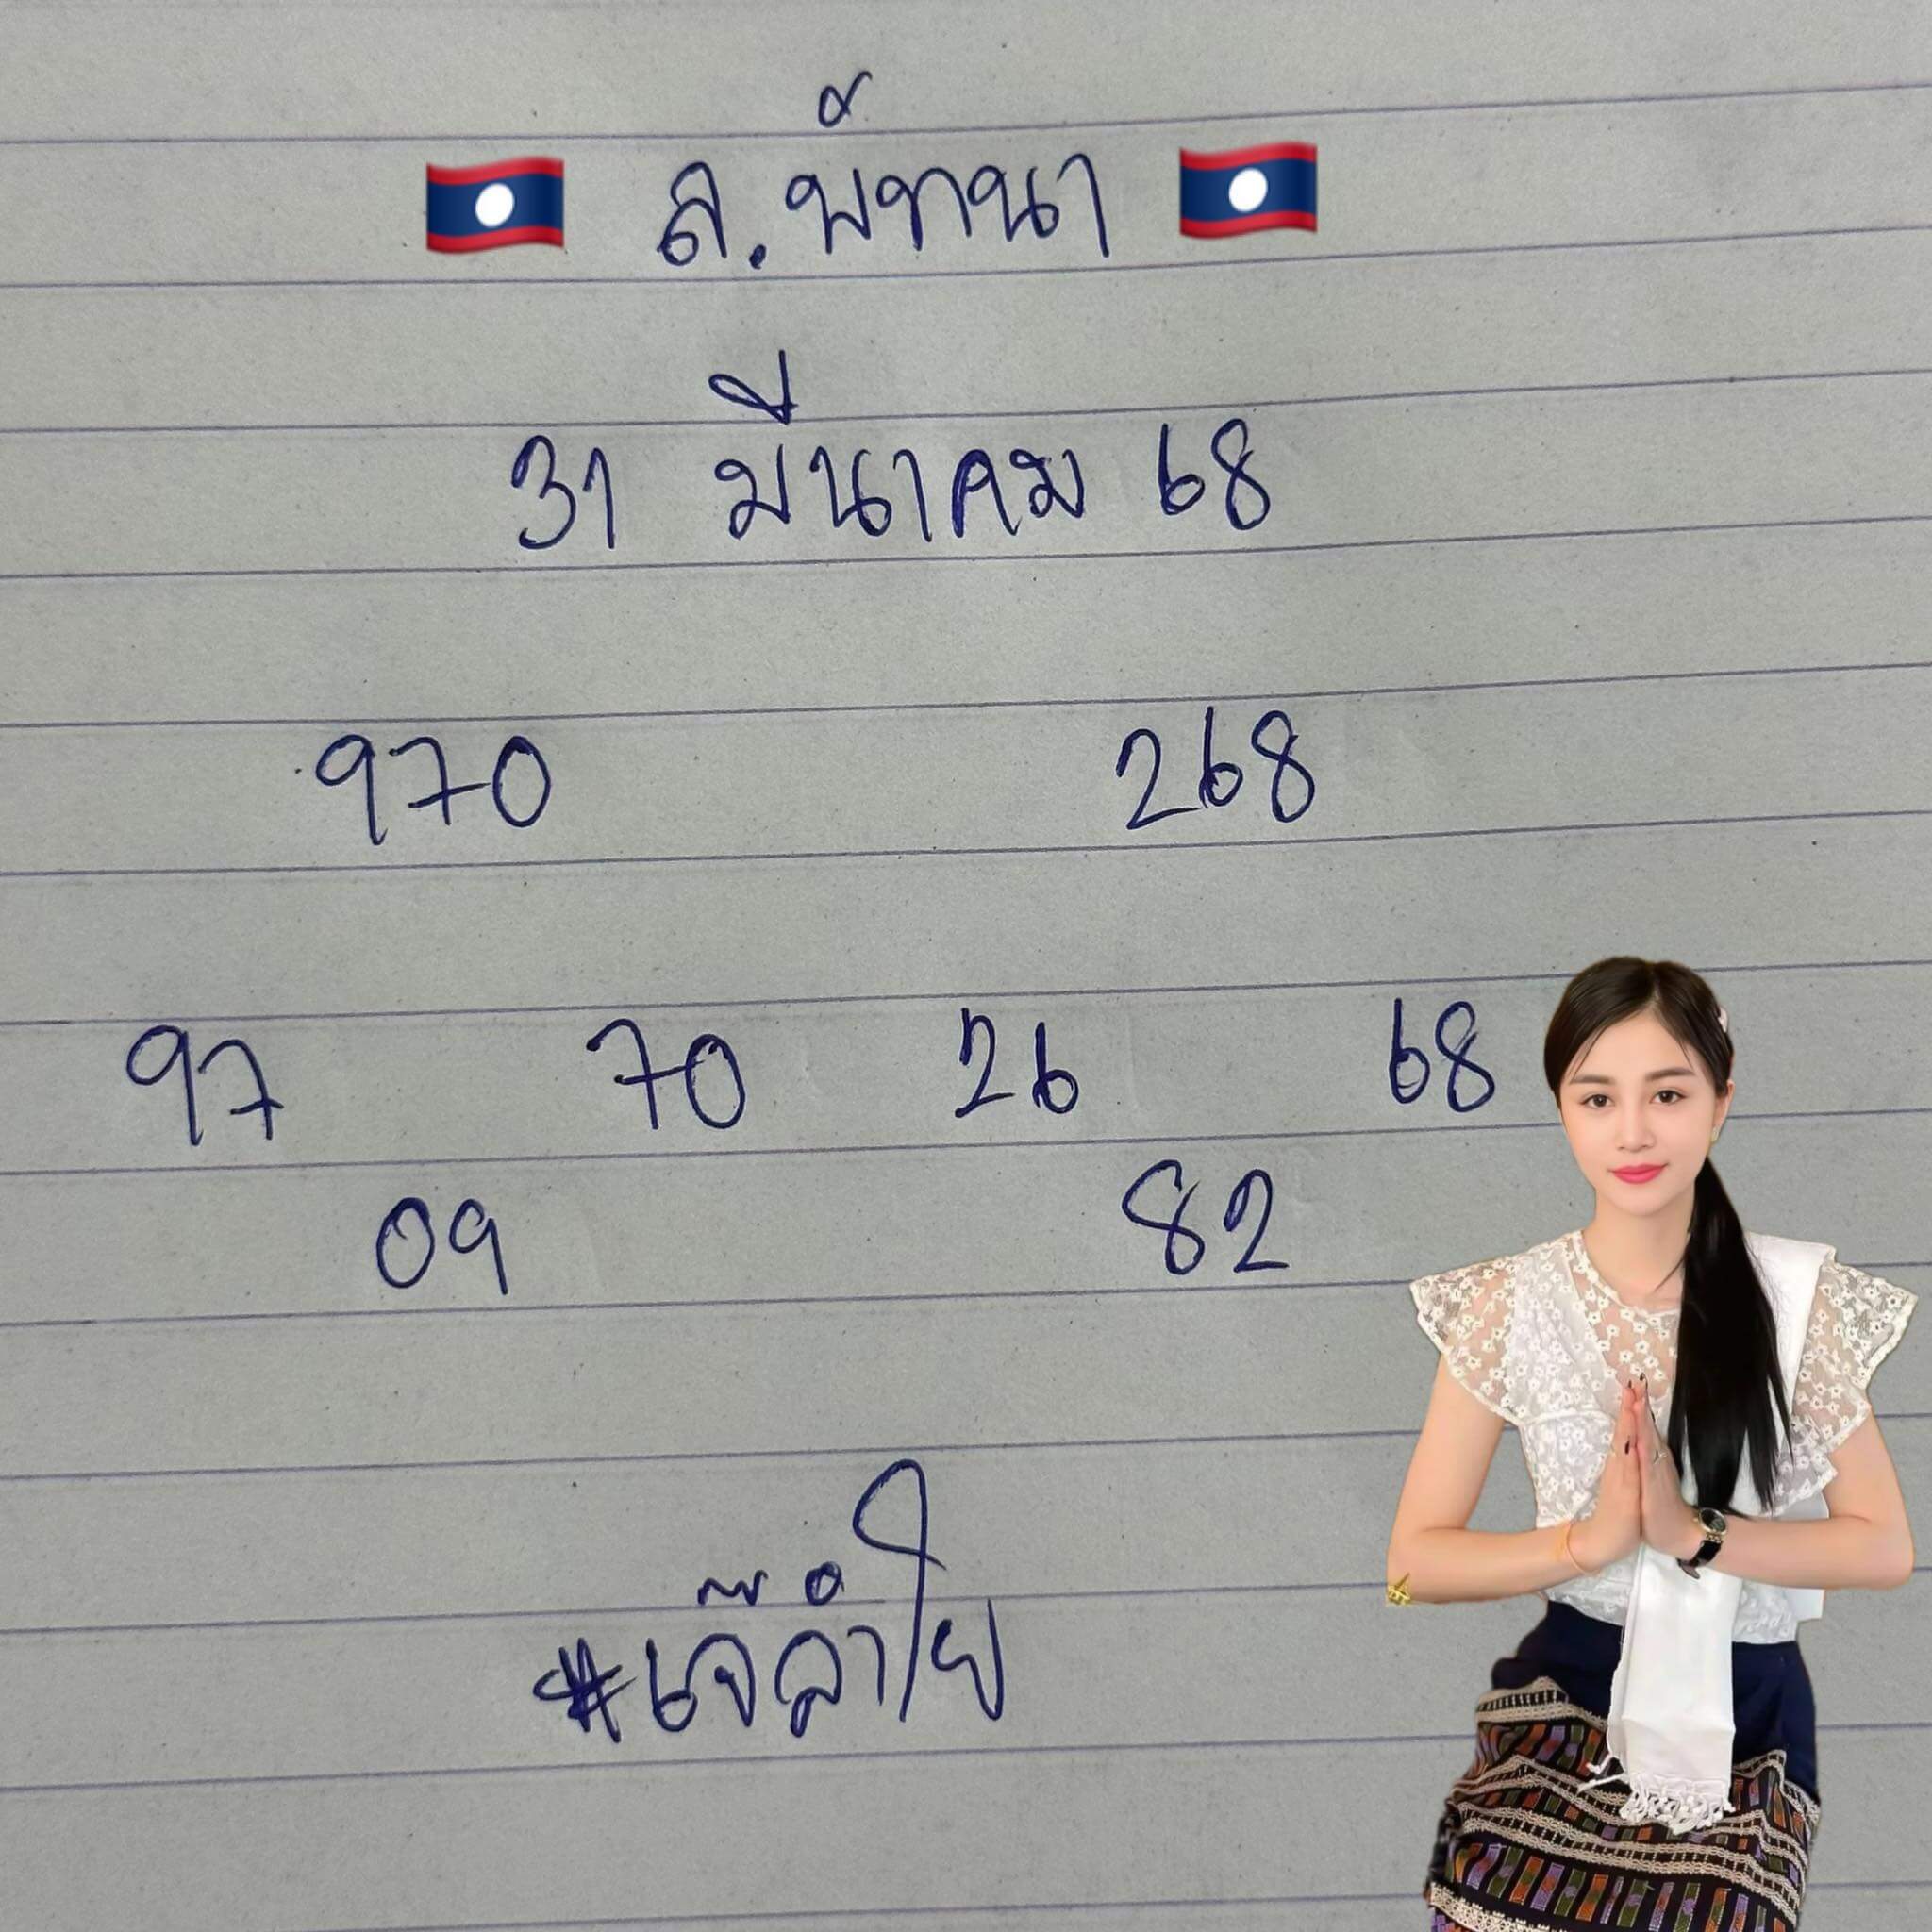 ล.พัทนา
31 มีนาคม 68
970 268
97 70 26 68
09 82
#เจ๊ลำใย